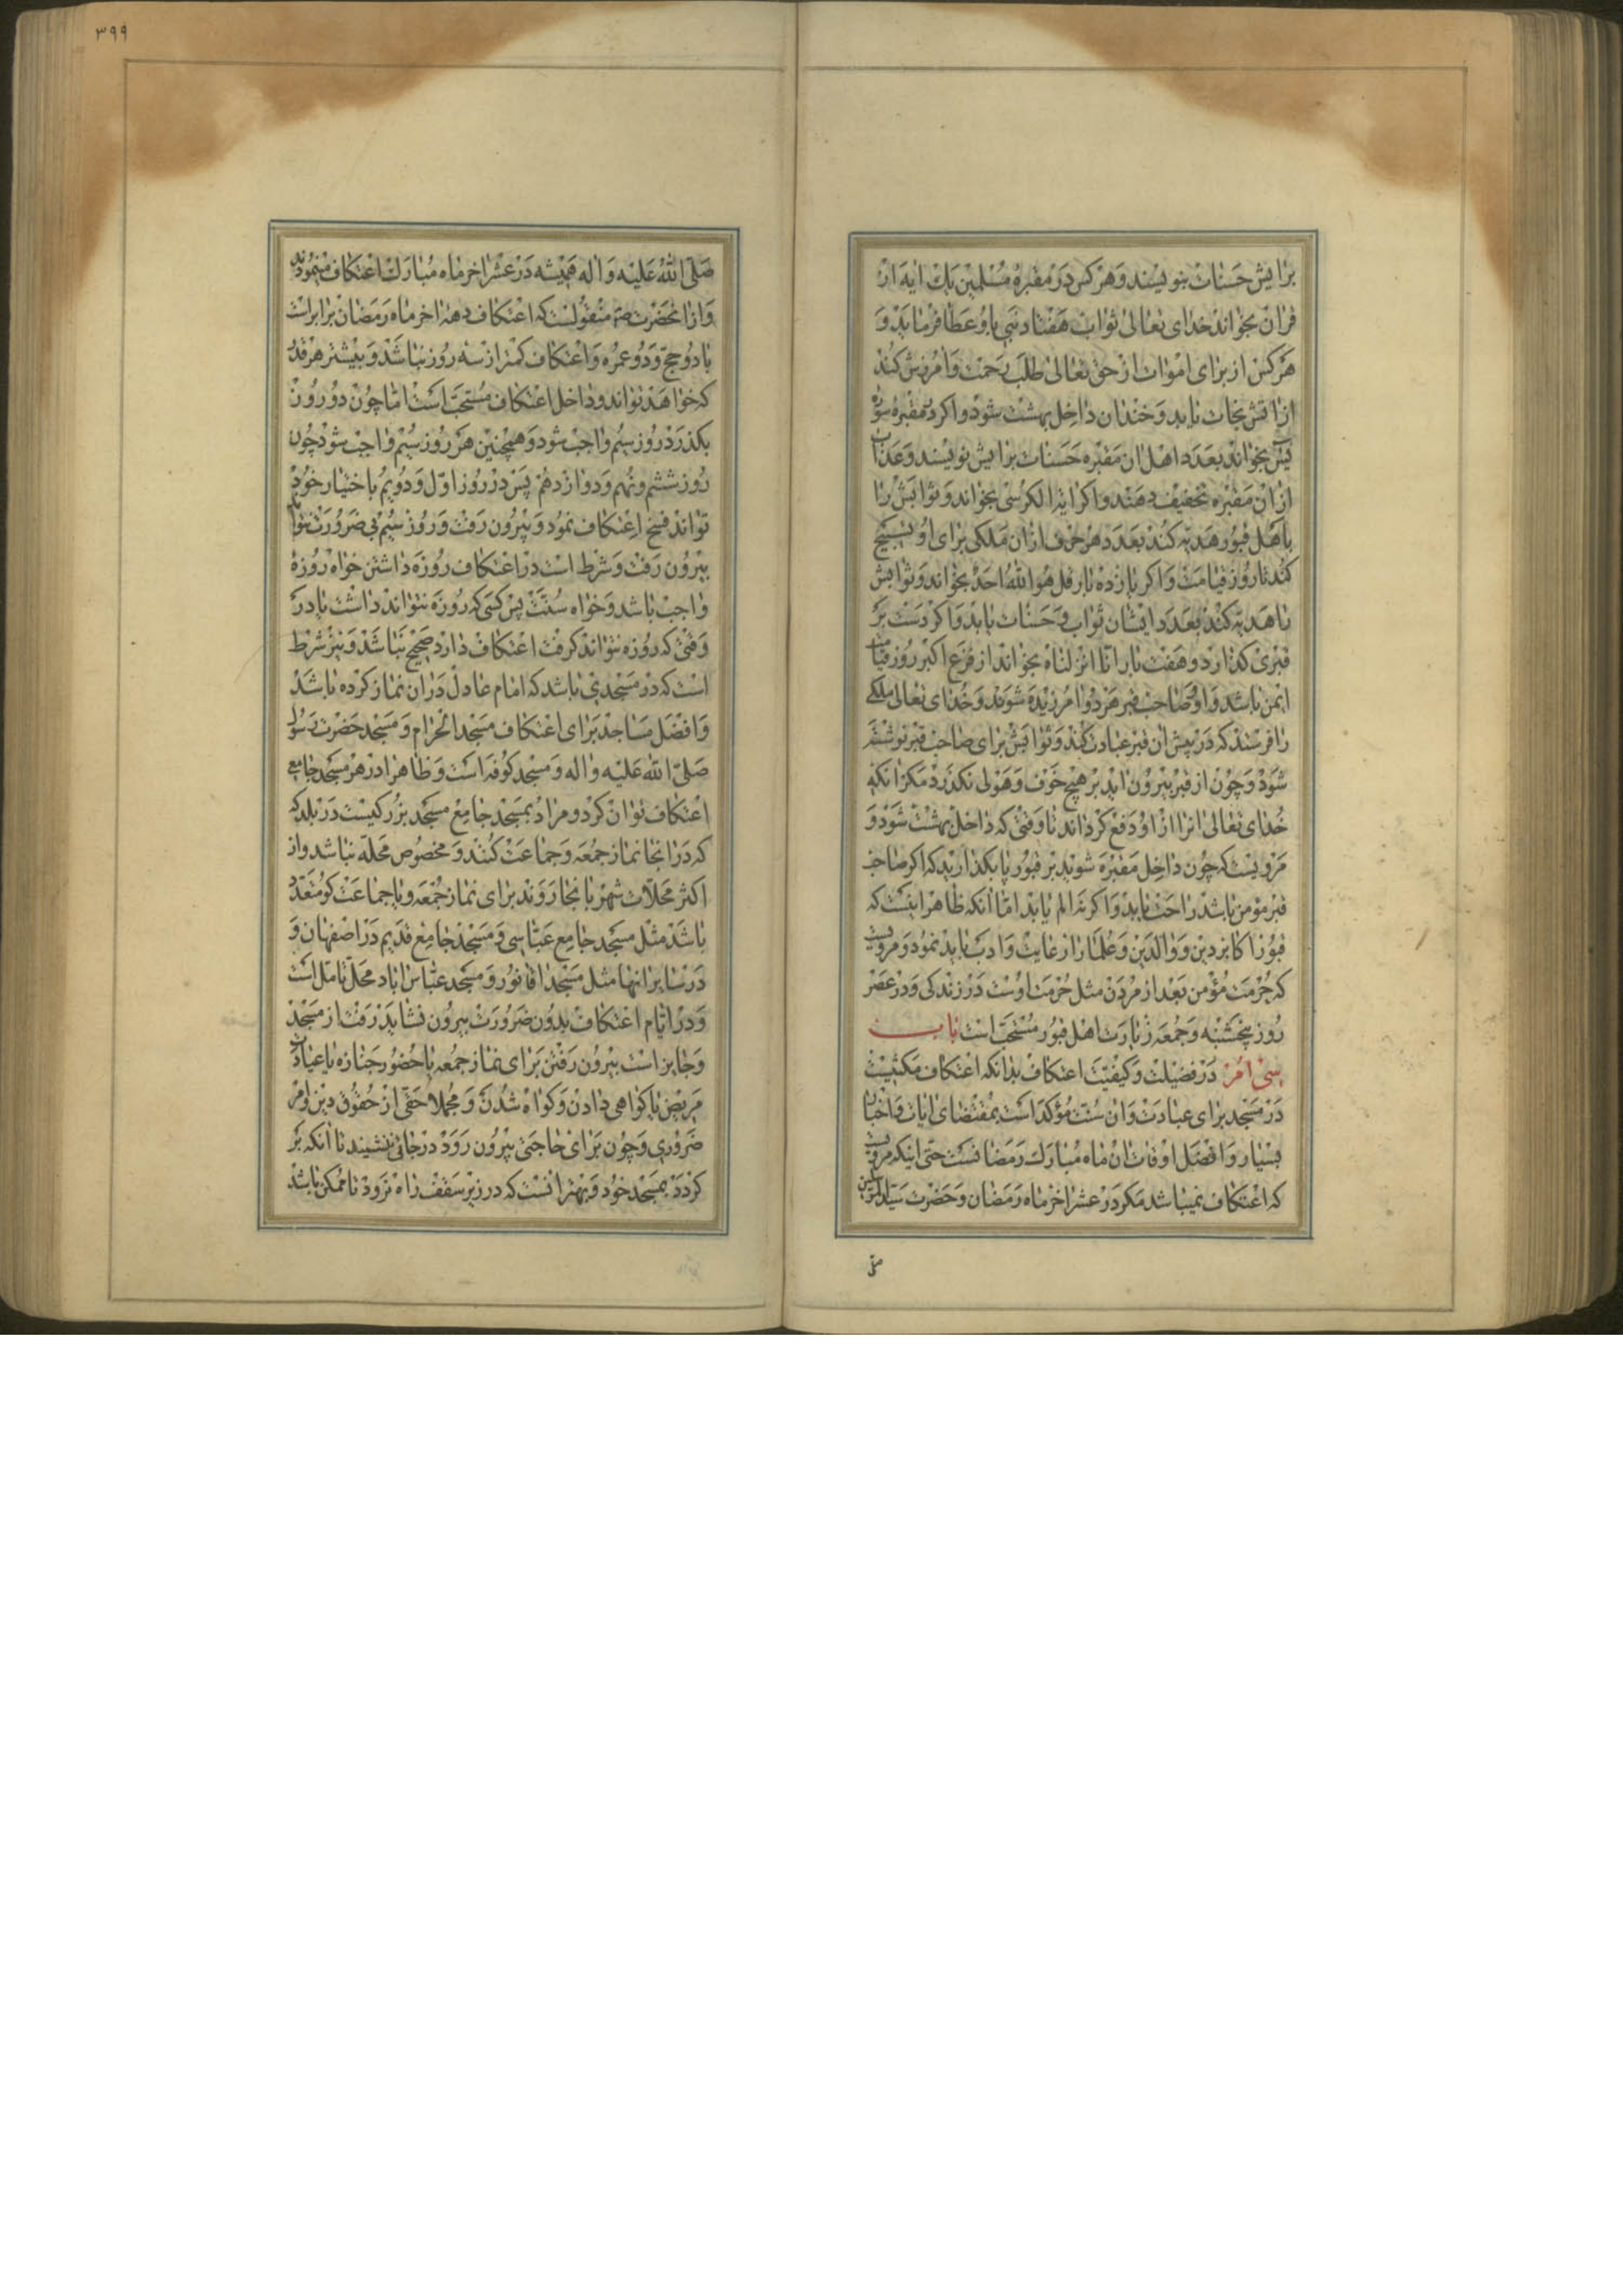 برایش حسنات بنویسند و هر کس در مقبرهٔ مسلمین یک آیه از
قران بخواند خدای تعالی ثواب هفتاد نبی باو عطا فرماید و
هر کس از برای اموات از حق تعالی طلب رحمت و آمرزش کند
از آتش نجات یابد و خندان داخل بهشت شود و اکر در مقبره سورهٔ
یس بخواند بعدد اهل ان مقبره حسنات برایش نویسند و عذاب
از ان مقبره تخفیف دهند و اکر ایة الکرسی بخواند و ثوابش را
باهل قبور هدیه کند بعدد هر حرف ازان ملکی برای او تسبیح
کند تا روز قیامت و اکر یازده بار قل هو الله احد بخواند و ثوابش
را هدیه کند بعدد ایشان ثواب و حسنات یابد و اکر دست بر
قبری کذارد و هفت بار انا انزلناه بخواند از فزع اکبر روز قیامت
ایمن باشد و او و صاحب قبر هر دو امرزیده شوند و خدای تعالی ملکی
را فرستد که در پیش ان قبر عبادت کند و ثوابش برای صاحب قبر نوشته
شود و چون از قبر بیرون اید بر هیچ خوف و هولی نکذرد مکر انکه
خدای تعالی انرا از او دفع کرداند تا وقتی که داخل بهشت شود و
مرویست که چون داخل مقبره شوید بر قبور پا بکذارید که اکر صاحب
قبر مؤمن باشد راحت یابد و اکر نه الم یابد اما انکه ظاهر اینست که
قبور اکابر دین و والدین و علما را رعایت و ادب باید نمود و مرویست
که حرمت مؤمن بعد از مردن مثل حرمت اوست در زندکی و در عصر
روز پنجشنبه و جمعه زیارت اهل قبور مستحب است باب
سی امر در فضیلت و کیفیت اعتکاف بدانکه اعتکاف مکثیست
در مسجد برای عبادت و ان سنت مؤکد است بمقتضای ایات و اخبار
بسیار و افضل اوقات ان ماه مبارک رمضانست حتی اینکه مرویست
که اعتکاف نمیباشد مکر در عشر اخر ماه رمضان و حضرت سید المرسلین
صلی
۳۹۹
صلی الله علیه و اله همیشه در عشر اخر ماه مبارک اعتکاف مینمودند
و از انحضرت صم منقولست که اعتکاف دههٔ اخر ماه رمضان برابر است
با دو حج و دو عمره و اعتکاف کمتر از سه روز نباشد و بیشتر هر قدر
که خواهد تواند و داخل اعتکاف مستحب است اما چون دو روز
بکذرد روز سیم واجب شود و همچنین هر روز سیم واجب شود چون
روز ششم و نهم و دوازدهم پس در روز اول و دویم باختیار خود
تواند فسخ اعتکاف نمود و بیرون رفت و روز سیم بی ضرورت نتواند
بیرون رفت و شرط است در اعتکاف روزه داشتن خواه روزهٔ
واجب باشد و خواه سنت پس کسی که روزه نتواند داشت یا در
وقتی که روزه نتواند کرفت اعتکاف دارد صحیح نباشد و نیز شرط
است که در مسجدی باشد که امام عادل دران نماز کرده باشد
و افضل مساجد برای اعتکاف مسجد الحرام و مسجد حضرت رسول
صلی الله علیه و اله و مسجد کوفه است و ظاهرا در هر مسجد جامع
اعتکاف توان کرد و مراد بمسجد جامع مسجد بزرکیست در بلد که
که در انجا نماز جمعه و جماعت کنند و مخصوص محله نباشد و از
اکثر محلات شهر بانجا روند برای نماز جمعه و یا جماعت کو متعدد
باشد مثل مسجد جامع عباسی و مسجد جامع قدیم در اصفهان و
در سایر انها مثل مسجد اقا نور و مسجد عباس اباد محل تامل است
و در ایام اعتکاف بدون ضرورت بیرون نشاید رفت از مسجد
و جایز است بیرون رفتن برای نماز جمعه یا حضور جنازه یا عیادت
مریض یا کواهی دادن و کواه شدن و مجملا حقی از حقوق دین و امر
ضروری و چون برای حاجتی بیرون رود در جائی ننشیند تا انکه بر
کردد بمسجد خود و بهتر انست که در زیر سقف راه نرود تا ممکن باشد